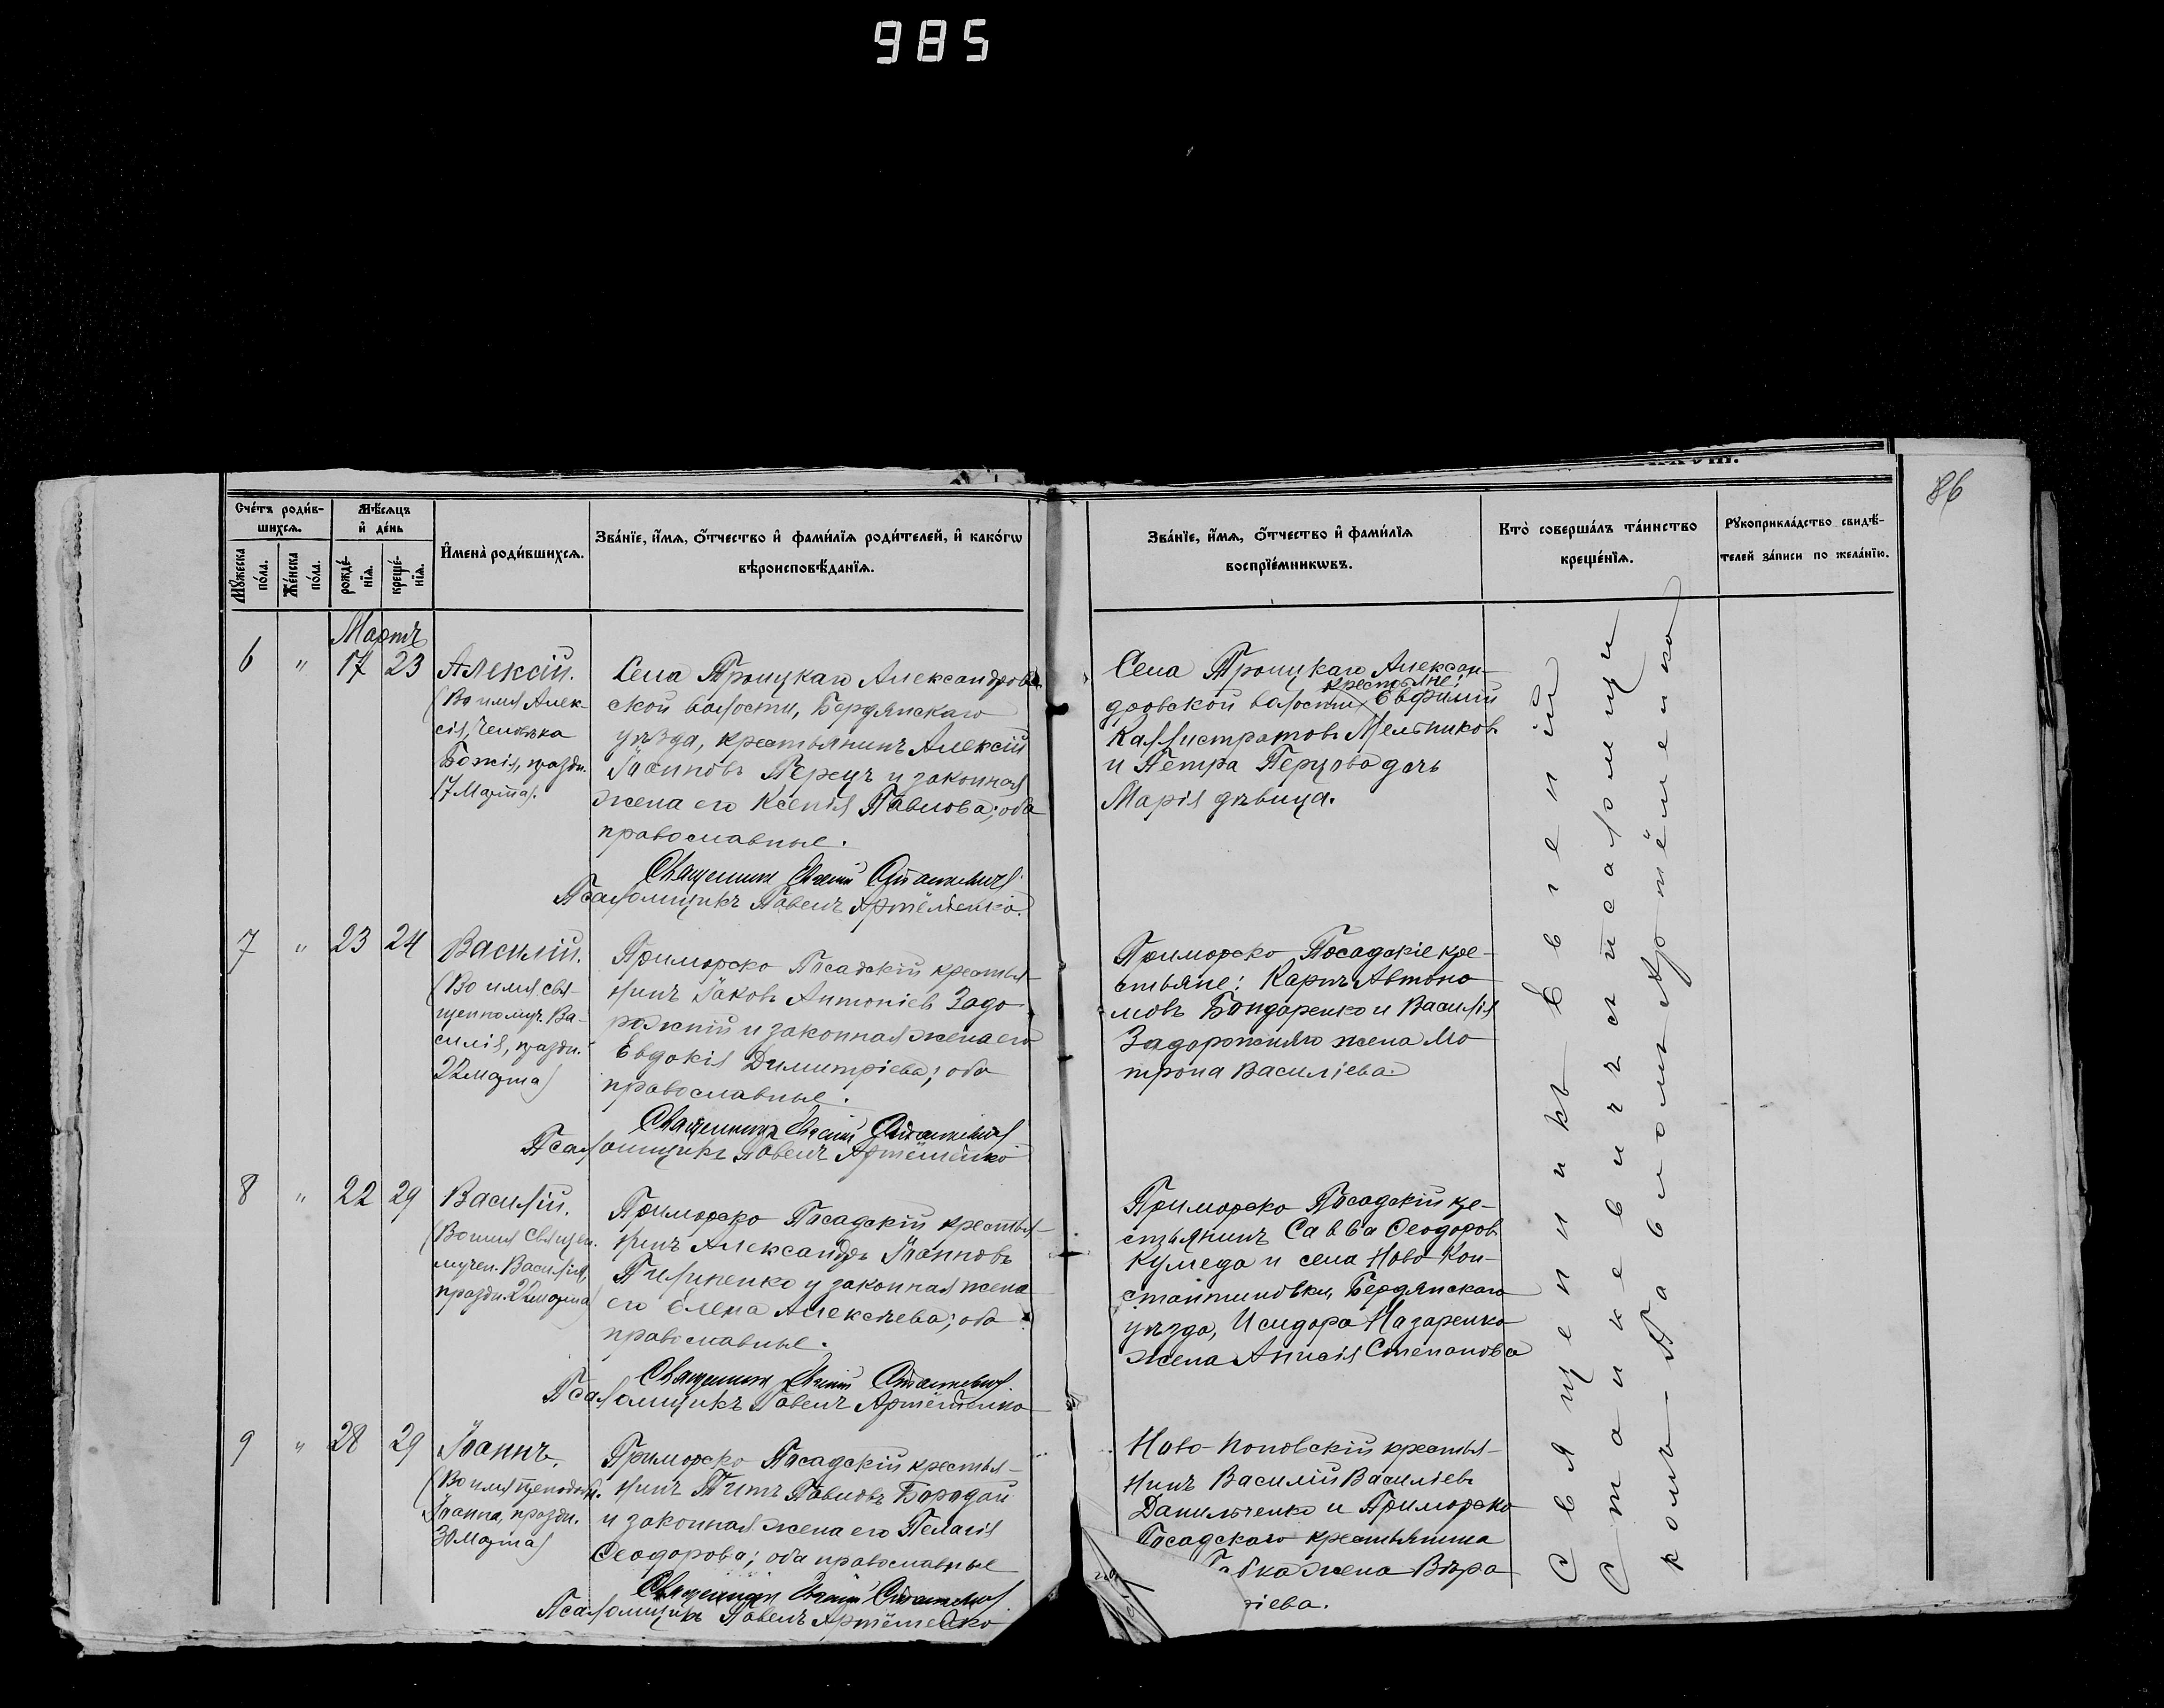 985
86
Счétъ роди́в-
шихсѧ.
Мꙋ́жеска
по́ла.
Же́нска
по́ла.
Мѣ́сѧцъ
и҆ де́нь
рожде́-
нїѧ.
креще́-
нїѧ.
И҆мена̀ роди́вшихсѧ.
Зва́нїе, и҆́мѧ, ѻ҆́тчество и҆ фами́лїѧ роди́телей, и҆ како́гѡ
вѣроисповѣ́данїѧ.
Зва́нїе, и҆́мѧ, ѻ҆́тчество и҆ фами́лїѧ
воспрїе́мникѡвъ.
Кто̀ соверша́лъ та́инство
креще́нїѧ.
Рꙋкоприкла́дство свидѣ́-
телей за́писи по жела́нїю.
Мартъ
6 " 17 23
Алексій.
(Во имя Алек-
сія, Человѣка
Божія, праздн.
17 Марта).
Села Троицкаго Александров-
ской волости, Бердянскаго
уѣзда, крестьянинъ Алексій
Іоанновъ Перецъ и законная
жена его Ксенія Павлова; оба
православные.
Священникъ Евгеній Станкевичъ
Псаломщикъ Павелъ Артёменко.
Села Троицкаго Алексан-
крестьяне:
дровской волости, Евфимій
Каллистратовъ Мельниковъ
и Петра Перцова дочь
Марія дѣвица.
7 " 23 24
Василій.
(Во имя свя-
щенномуч. Ва-
силія, праздн.
22 марта)
Приморско Посадскій крестья-
нинъ Іаковъ Антоніевъ Задо-
рожній и законная жена его
Евдокія Димитріева; оба
православные.
Священникъ Евгеній Станкевичъ
Псаломщикъ Павелъ Артёменко
Приморско Посадскіе кре-
стьяне: Карпъ Автоно
мовъ Бондаренко и Василія
Задорожняго жена Ма
трона Василіева.
8 " 22 29
Василій.
(Во имя Священ.
мучен. Василія,
праздн. 22 марта)
Приморско Посадскій крестья-
нинъ Александръ Іоанновъ
Пилипенко и законная жена
его Елена Алексѣева; оба
православные.
Священникъ Евгеній Станкевичъ.
Псаломщикъ Павелъ Артёменко
Приморско Посадскій кре-
стьянинъ Савва Ѳеодоровъ
Кумеда и села Ново-Кон-
стантиновки, Бердянскаго
уѣзда, Исидора Назаренко
жена Анисія Степанова
9 " 28 29
Іоаннъ.
(Во имя преподобн.
Іоанна, праздн.
30 Марта)
Приморско Посадскій крестья-
нинъ Титъ Павловъ Бородай
и законная жена его Пелагія
Ѳеодорова; оба православные
Священникъ Евгеній Станкевичъ
Псаломщикъ Павелъ Артёменко
Ново-Поповскій крестья-
нинъ Василій Василіевъ
Данильченко и Приморско
Посадскаго крестьянина
жена Вѣра
ріева.
Священникъ Евгеній
Станкевичъ съ псаломщи
комъ Павломъ Артёменко